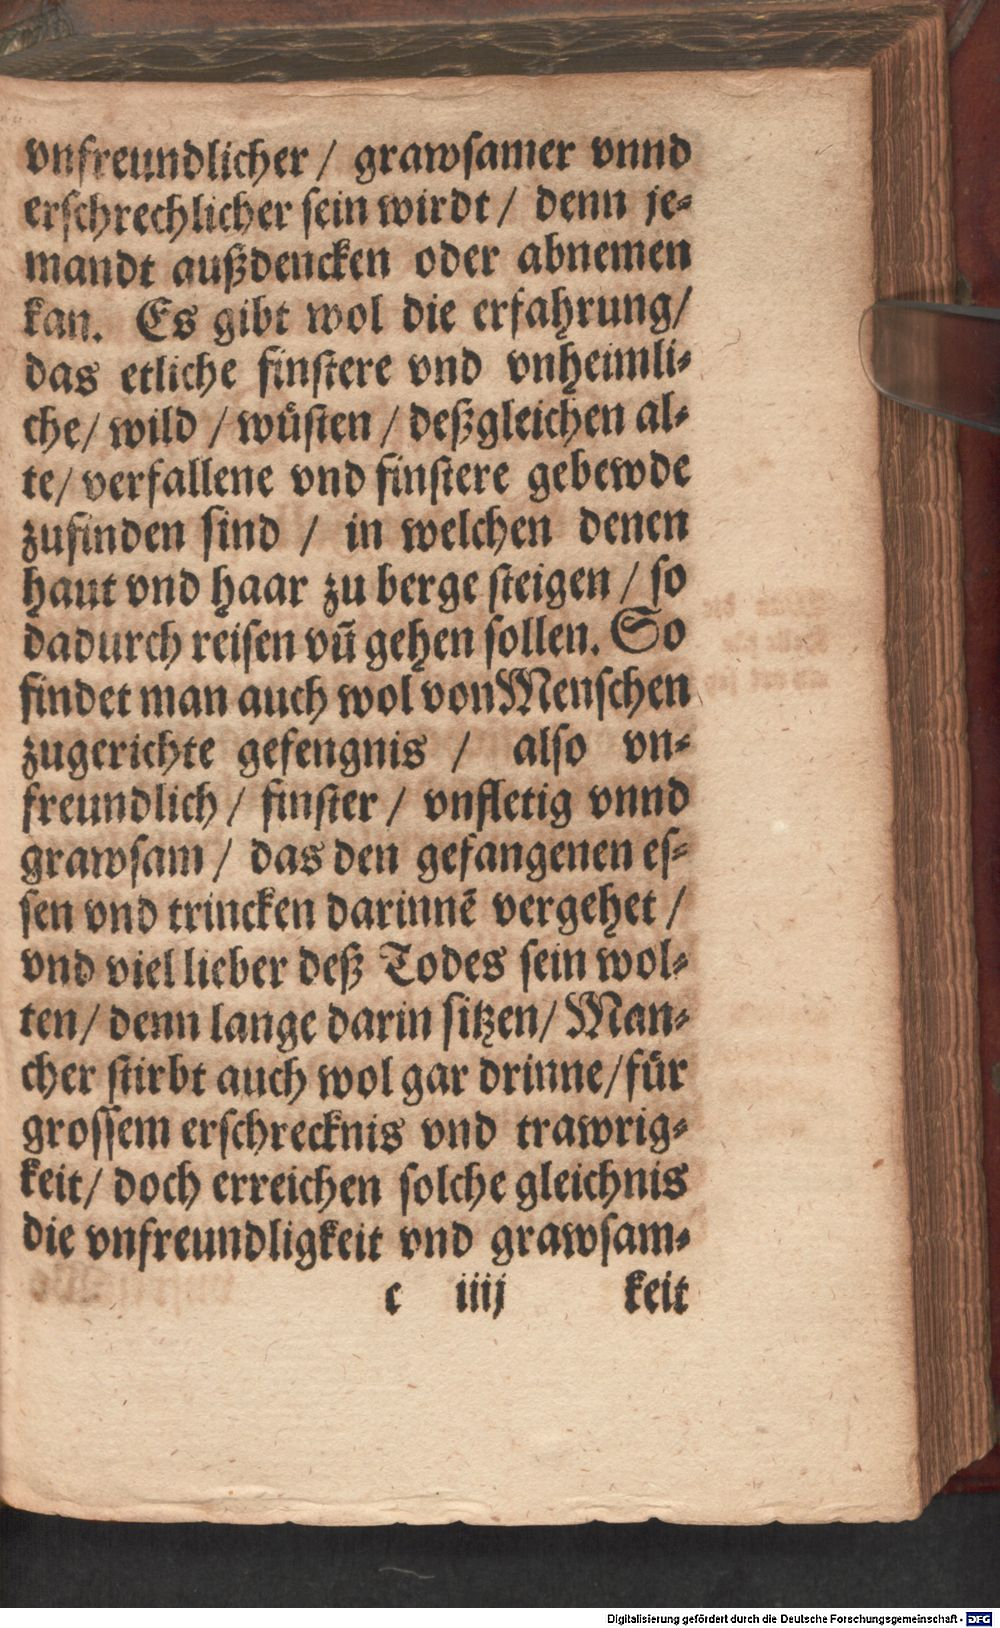 vnfreundlicher / grawsamer vnnd
erschrechlicher sein wirdt / denn je⸗
mandt außdencken oder abnemen
kan. Es gibt wol die erfahrung/
das etliche finstere vnd vnheimli⸗
che/ wild / wüsten / deßgleichen al⸗
te/ verfallene vnd finstere gebewde
zufinden sind / in welchen denen
haut vnd haar zu berge steigen / so
dadurch reisen vñ gehen sollen. So
findet man auch wol von Menschen
zugerichte gefengnis / also vn⸗
freundlich / finster / vnfletig vnnd
grawsam / das den gefangenen es⸗
sen vnd trincken darinnẽ vergehet /
vnd viel lieber deß Todes sein wol⸗
ten/ denn lange darin sitzen/ Man⸗
cher stirbt auch wol gar drinne/ für
grossem erschrecknis vnd trawrig⸗
keit/ doch erreichen solche gleichnis
die vnfreundligkeit vnd grawsam⸗
c iiij keit
Digitalisierung gefördert durch die Deutsche Forschungsgemeinschaft - DFG